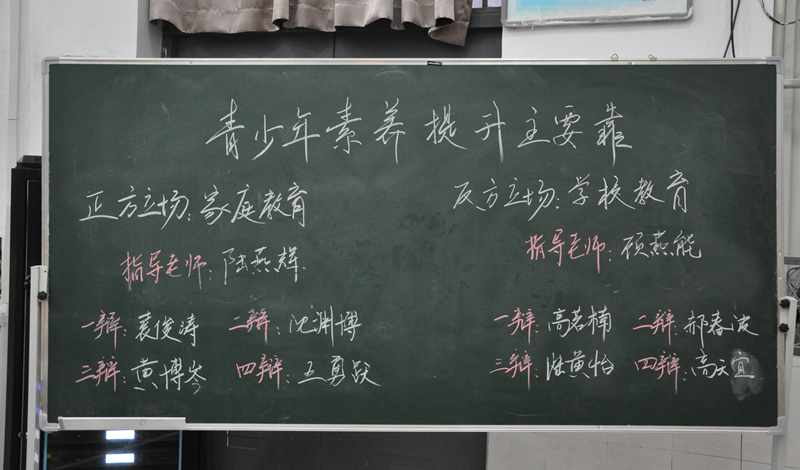 青少年素养提升主要靠
正方立场：家庭教育
指导老师：陆燕辉
一辩：袁俊涛 二辩：沈渊博
三辩：黄博岑 四辩：王勇跃
反方立场：学校教育
指导老师：顾燕能
一辩：高茗楠 二辩：郝春波
三辩：陆黄怡 四辩：高天宜